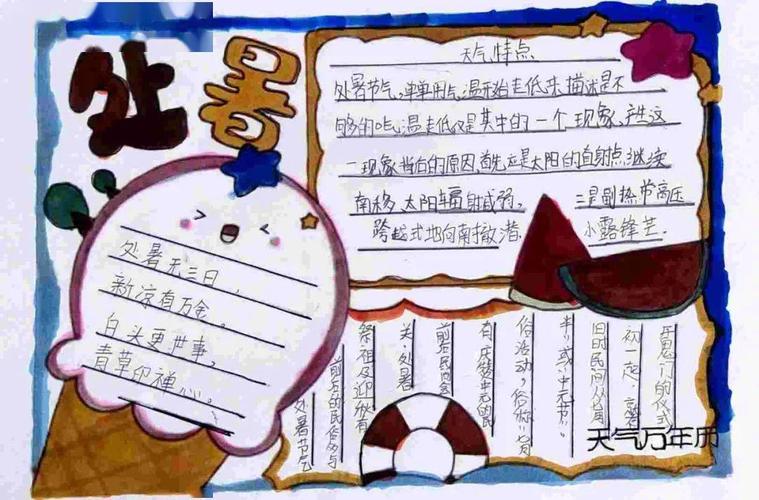 处暑
天气特点
处暑节气,单单用气温开始走低来描述是不
够的。气温走低仅是其中的一个现象,产生这
一现象背后的原因,首先应是太阳的直射点继续
南移,太阳辐射减弱。 二是副热带高压
跨越式地向南撤潜 小露锋芒
处暑无三日,
新凉有万金。
白头更世事,
青草印禅心。
处暑节气
前后的民俗多与
祭祖及迎秋有
关。处暑
前后民间会
有庆赞中元的民
俗活动,俗称“
半”或“中元节”。
旧时民间从
初一起,
开鬼门的仪式
天气万年历